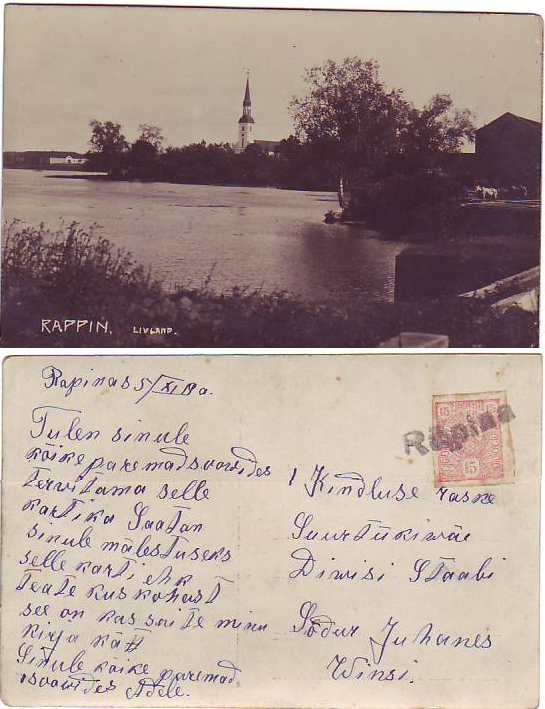 RAPPIN. LIVLAND.
Rapinas 5/XI 19 a.
Tulen sinule
kõike paremad soovides
tervitama selle
kartika Saatan
sinule mälestuseks
selle karti ehk
teate kus kohast
see on kas saite minu
kirja kätt
Sinule kõike paremad
soovides Adele.
15 15
Räpina
1 Kindluse raske
Suurtükiwäe
Diwisi Staabi
Sõdur Juhanes
Winsi.